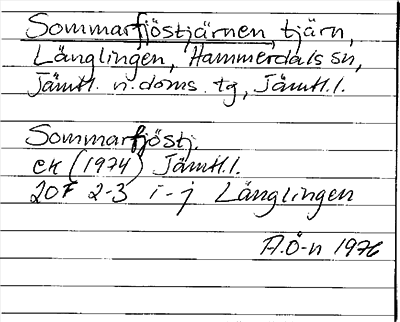 Sommarfjöstjärnen, tjärn,
Länglingen, Hammerdals sn,
Jämtl. n. doms. tg, Jämtl. l.
Sommarfjöstj.
ek (1974) Jämtl. l.
20F 2-3 i-j Länglingen
A.Ö-n 1976